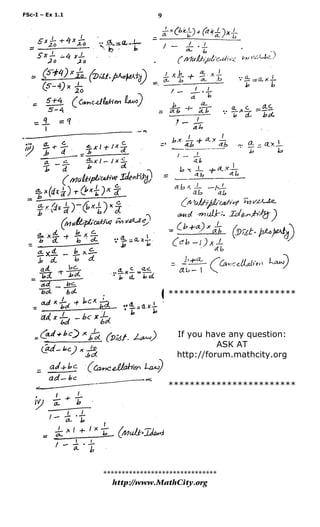 FSc-I – Ex 1.1
9
= 5 × 1/20 + 4 × 1/20 / 5 × 1/20 − 4 × 1/20 ∵ a/b = a · 1/b
= (5+4) × 1/20 / (5−4) × 1/20 (Dist. property)
= 5+4 / 5−4 (Cancellation Law)
= 9/1 = 9
iii) a/b + c/d / a/b − c/d = a/b × 1 + 1 × c/d / a/b × 1 − 1 × c/d
(multiplicative Identity)
= a/b × (d × 1/d) + (b × 1/b) × c/d / a/b × (d × 1/d) − (b × 1/b) × c/d
(multiplicative inverse)
= a/b × d/d + b/b × c/d / a/b × d/d − b/b × c/d ∵ a/b = a × 1/b
= ad/bd + bc/bd / ad/bd − bc/bd ∵ a/b × c/d = ac/bd
= ad × 1/bd + bc × 1/bd / ad × 1/bd − bc × 1/bd ∵ a/b = a × 1/b
= (ad + bc) × 1/bd / (ad − bc) × 1/bd (Dist. Law)
= ad + bc / ad − bc (Cancellation Law)
iv) 1/a + 1/b / 1 − 1/a · 1/b
= 1/a × 1 + 1 × 1/b / 1 − 1/a · 1/b (mult. Ident
= 1/a × (b × 1/b) + (a × 1/a) × 1/b / 1 − 1/a · 1/b
(multiplicative inverse)
= 1/a × b/b + a/a × 1/b / 1 − 1/a · 1/b ∵ a/b = a × 1/b
= b/ab + a/ab / 1 − 1/ab ∵ a/b × c/d = ac/bd
= b × 1/ab + a × 1/ab / 1 − 1/ab ∵ a/b = a × 1/b
= b × 1/ab + a × 1/ab / ab × 1/ab − 1 · 1/ab
(multiplicative inverse and mult. Identity)
= (b + a) × 1/ab / (ab − 1) × 1/ab (Dist. property)
= b + a / ab − 1 (Cancellation Law)
************************
If you have any question:
ASK AT
http://forum.mathcity.org
************************
******************************
http://www.MathCity.org